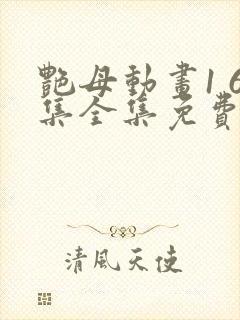 艷母動畫16
集全集免費
清風天使